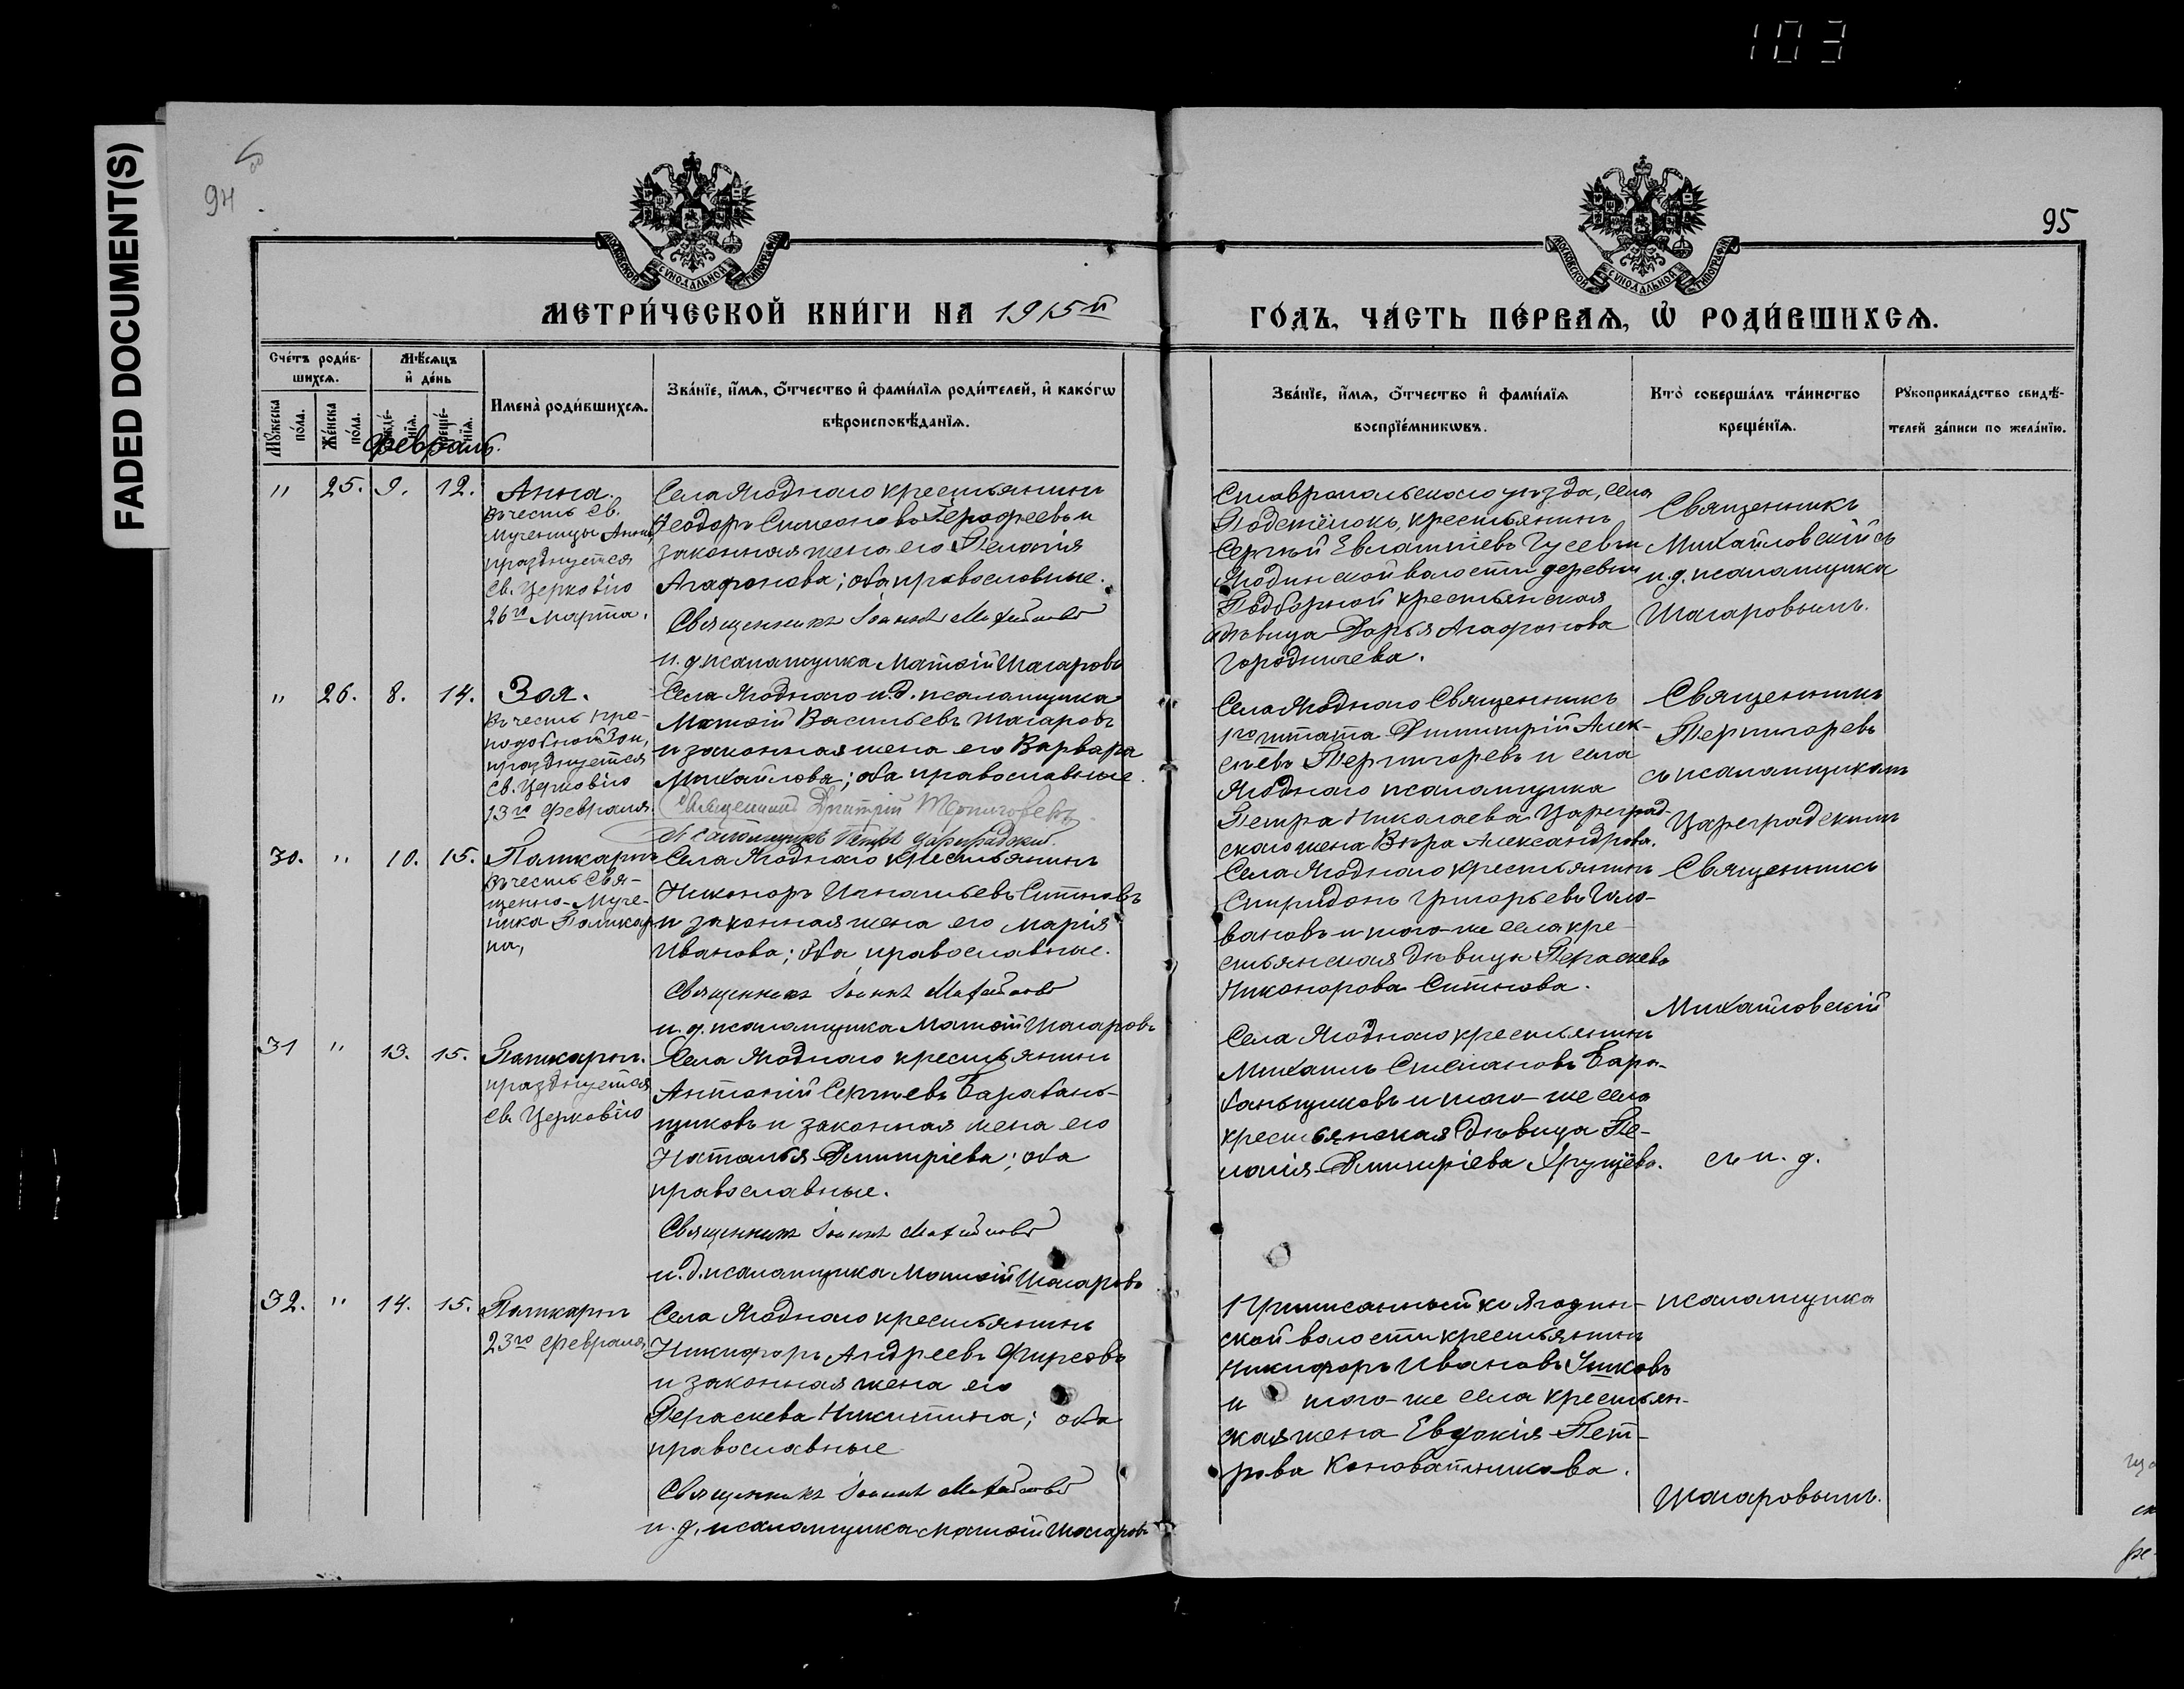 103
FADED DOCUMENT(S)
94
95
МОСКОВСКОЙ СѴНОДАЛЬНОЙ ТИПОГРАФІИ
МОСКОВСКОЙ СѴНОДАЛЬНОЙ ТИПОГРАФІИ
МЕТРИ́ЧЕСКОЙ КНИ́ГИ НА 1915й
ГО́ДЪ, ЧА́СТЬ ПЕ́РВАѦ, Ѡ҆ РОДИ́ВШИХСѦ.
Сче́тъ роди́в-
шихсѧ.
Мѣ́сѧцъ
и҆ де́нь
Мꙋ́жеска
по́ла.
Же́нска
по́ла.
Имена̀ роди́вшихсѧ.
Зва́нїе, и҆́мѧ, ѻ҆́тчество и҆ фами́лїѧ роди́телей, и҆ како́гѡ
вѣроисповѣ́данїѧ.
Зва́нїе, и҆́мѧ, ѻ҆́тчество и҆ фами́лїѧ
воспрїе́мникѡвъ.
Кто̀ соверша́лъ та́инство
креще́нїѧ.
Рꙋкоприкла́дство свидѣ́-
телей за́писи по жела́нїю.
Февраль.
" 25. 9. 12. Анна.
Въ честь Св.
Мученицы Анны,
празднуется
Св. Церковію
26го Марта.
Села Ягоднаго крестьянинъ
Ѳеодоръ Симеоновъ Ерофеевъ и
законная жена его Пелагія
Агафонова; оба православные.
Священникъ Іоаннъ Михайловс
и. д. псаломщика Матѳій Шагаровъ
Ставропольскаго уѣзда, села
Подстёпокъ, крестьянинъ
Сергѣй Евлампіевъ Гусевъ и
Ягодинской волости деревни
Подборной крестьянская
дѣвица Дарья Агафонова
Городничева.
Священникъ
Михайловскій съ
и. д. псаломщика
Шагаровымъ.
" 26. 8. 14. Зоя.
Въ честь пре-
подобной Зои,
празднуется
Св. Церковію
13го Февраля.
Села Ягоднаго и. д. псаломщика
Матѳій Васильевъ Шагаровъ
и законная жена его Варвара
Михайлова; оба православные.
Священникъ Дмитрій Терпигоревъ.
Псаломщикъ Петръ Цареградскій.
Села Ягоднаго Священникъ
1го штата Димитрій Алек-
сѣевъ Терпигоревъ и села
Ягоднаго псаломщика
Петра Николаева Цареград-
скаго жена Вѣра Александрова.
Священникъ
Терпигоревъ
съ псаломщикомъ
Цареградскимъ
30. " 10. 15. Поликарпъ
Въ честь Свя-
щенно-Муче-
ника Поликар-
па,
Села Ягоднаго крестьянинъ
Никоноръ Игнатьевъ Ситновъ
и законная жена его Марія
Иванова; оба православные.
Священникъ Іоаннъ Михайловс
и. д. псаломщика Матѳій Шагаровъ
Села Ягоднаго крестьянинъ
Спиридонъ Григорьевъ Голо-
вановъ и того-же села кре-
стьянская дѣвица Параскева
Никонорова Ситнова.
Священникъ
Михайловскій
31 " 13. 15. Поликарпъ.
празднуется
Св. Церковію
Села Ягоднаго крестьянинъ
Антоній Сергѣевъ Барабань-
щиковъ и законная жена его
Наталья Димитріева; оба
православные.
Священникъ Іоаннъ Михайловс
и. д. псаломщика Матѳій Шагаровъ
Села Ягоднаго крестьянинъ
Михаилъ Степановъ Бара-
баньщиковъ и того-же села
крестьянская дѣвица Пе-
лагія Димитріева Хрущёва.
съ и. д.
32. " 14. 15. Поликарпъ
23го Февраля
Села Ягоднаго крестьянинъ
Никифоръ Андреевъ Фирсовъ
и законная жена его
Параскева Никитина; оба
православные
Священникъ Іоаннъ Михайловс
и. д. псаломщика Матѳій Шагаровъ
Приписанный къ Ягодин-
ской волости крестьянинъ
Никифоръ Ивановъ Ушковъ
и того-же села крестьян-
ская жена Евдокія Пет-
рова Коноватникова.
псаломщика
Шагаровымъ.